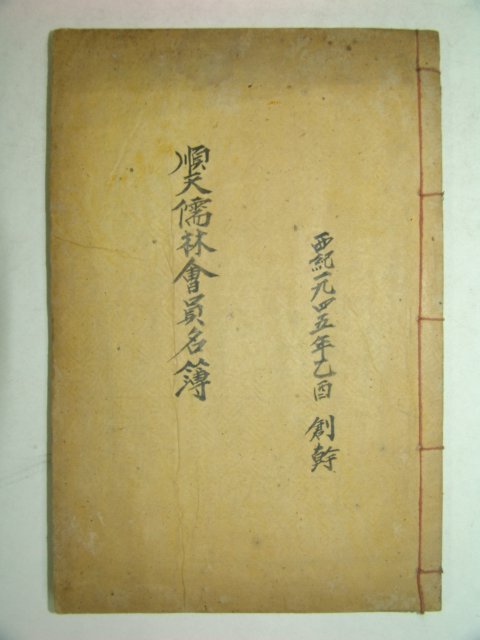 西紀一九四五年乙酉 創幹
順天儒林會員名簿